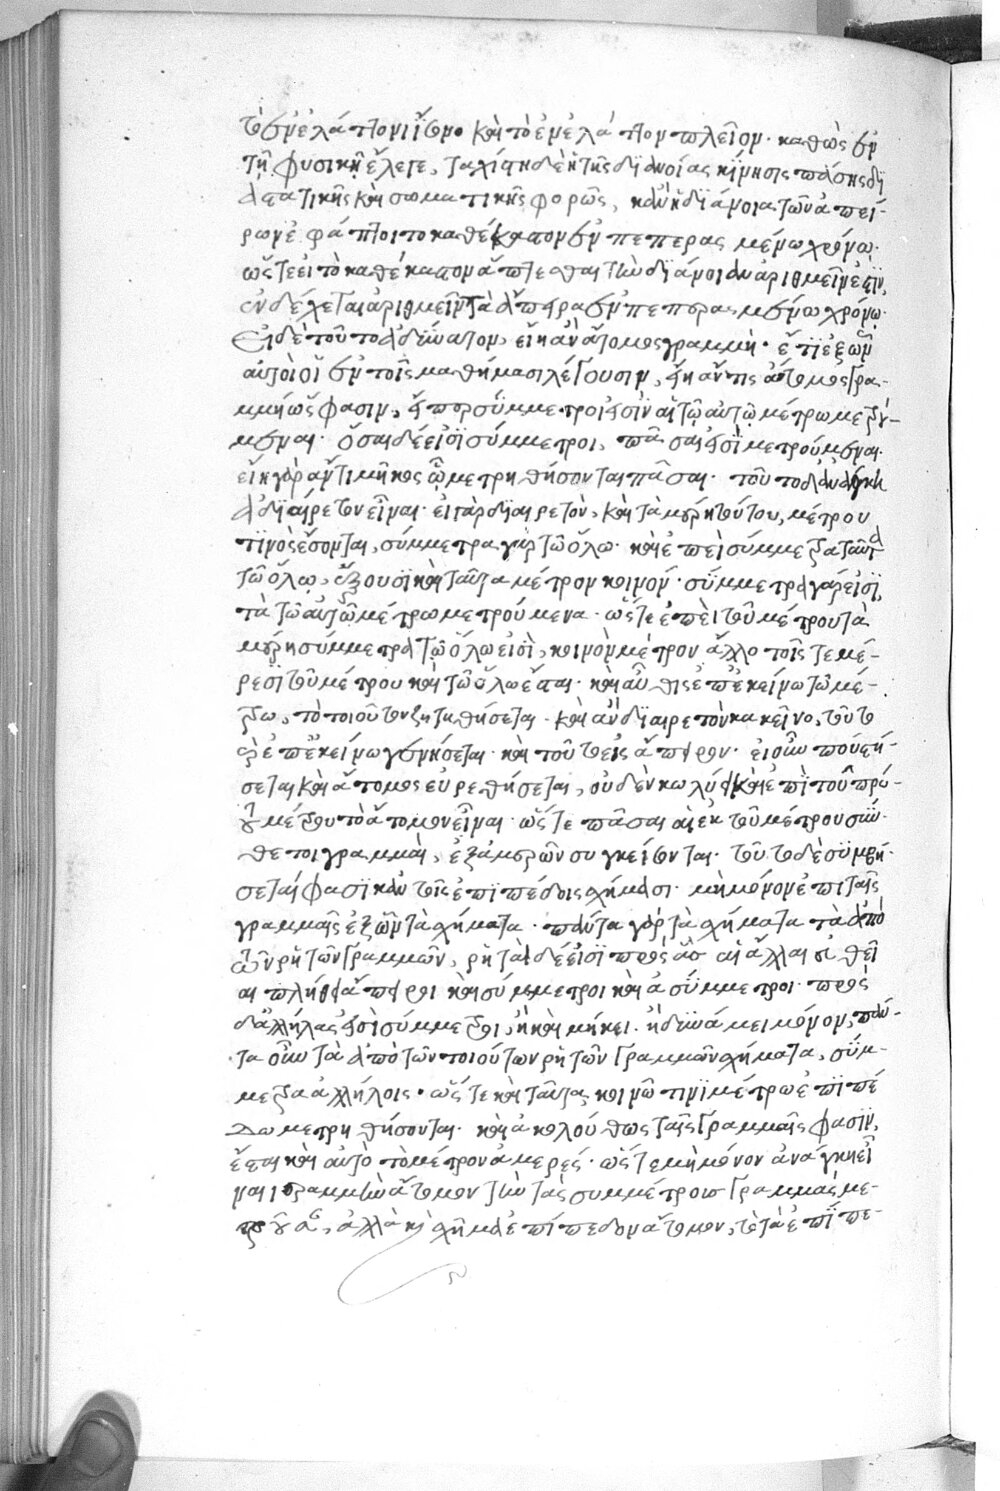 τὸ ἐν ἐλάττονι ἴσῳ καὶ τὸ ἐν ἐλάττον πλεῖον· καθὼς ἐν
τῇ φυσικῇ ἔλεγε, ταχίστη δὲ ἡ τῆς διανοίας κίνησις πάσης δι
αστατικῆς καὶ σωματικῆς φορᾶς, κἂν ἡ διάνοια τῶν ἀπεί-
ρων ἐφάπτοιτο καθέκαστον ἐν πεπερασμένω χρόνω·
ὥστε εἰ τὸ καθέκαστον ἅπτεσθαι τὴν διάνοιαν ἀριθμεῖν ἐστὶν,
ἐνδέχεται ἀριθμεῖν τὰ ἄπειρα ἐν πεπερασμένω χρόνῳ·
εἰ δὲ τοῦτο ἀδύνατον, εἴη ἂν ἄτομος γραμμὴ· ἔτι ἐξ ὧν
αὐτοὶ οἱ ἐν τοῖς μαθήμασι λέγουσιν, εἴη ἄν τις ἄτομος γρα-
μμὴ ὥς φασιν, εἴπερ σύμμετροί εἰσιν αἱ τῷ αὐτῷ μέτρω μετρού-
μεναι· ὅσαι δέ εἰσι σύμμετροι, πᾶσαι εἰσὶ μετρούμεναι·
εἴη γὰρ ἄν τι μῆκος ᾧ μετρηθήσονται πᾶσαι· τοῦτο δ' ἀνάγκη
ἀδιαίρετον εἶναι· εἰ γὰρ διαιρετὸν, καὶ τὰ μέρη τούτου, μέτρου
τινὸς ἔσονται, σύμμετρα γὰρ τῶ ὅλω· καὶ ἐπεὶ σύμμετρα ταῦτα
τῶ ὅλῳ, ἕξουσι καὶ ταῦτα μέτρον κοινόν· σύμμετρα γάρ εἰσι,
τὰ τῶ αὐτῶ μέτρω μετρούμενα· ὥστε ἐπεὶ τοῦ μέτρου τὰ
μέρη σύμμετρα τῷ ὅλω εἰσὶ, κοινὸν μέτρον ἄλλο τοῖς τε μέ-
ρεσι τοῦ μέτρου καὶ τῶ ὅλω ἔσται· καὶ αὖθις ἐπ' ἐκείνω τῶ μέ-
τρω, τὸ ποιοῦτον ζητηθήσεται· καὶ ἂν διαιρετὸν κακεῖνο, τοῦτο
ἐπ' ἐκείνω γενήσεται· καὶ τοῦτο εἰς ἄπειρον· εἰ οὖν που στή-
σεται καὶ ἄτομος εὑρεθήσεται, οὐδὲν κωλύει καὶ ἐπὶ τοῦ πρώ-
του μέτρου τὸ ἄτομον εἶναι· ὥστε πᾶσαι αἱ ἐκ τοῦ μέτρου σύν-
θετοι γραμμαὶ, ἐξ ἀμερῶν συγκείσονται· τοῦτο δὲ συμβή-
σεται φασὶ κἀν τοῖς ἐπιπέδοις σχήμασι· μὴ μόνον ἐπὶ ταῖς
γραμμαῖς ἐξ ὧν τὰ σχήματα· πάντα γὰρ τὰ σχήματα τὰ ἀπὸ
τῶν ῥητῶν γραμμῶν, ῥηταὶ δέ εἰσι πρὸς ἃς αἱ ἄλλαι εὐθεῖ
αι πλήθει ἄπειροι καὶ σύμμετροι καὶ ἀσύμμετροι· πρὸς
δ' ἀλλήλας εἰσὶ σύμμετροι, ἢ καὶ μήκει· ἢ δυνάμει μόνον, πάν-
τα οὖν τὰ ἀπὸ τῶν ποιούτων ῥητῶν γραμμῶν σχήματα, σύμ-
μετρα ἀλλήλοις· ὥστε καὶ ταῦτα κοινῶ τινὶ μέτρω ἐπιπέ
δω μετρηθήσονται· καὶ ἀκολούθως ταῖς γραμμαῖς φασὶν,
ἔσται καὶ αὐτὸ τὸ μέτρον ἀμερές· ὥστε μὴ μόνον ἀνάγκη εἶ
ναι γραμμὴν ἄτομον τὴν τὰς συμμέτρους γραμμὰς με-
τροῦσαν, ἀλλὰ καὶ σχῆμα ἐπίπεδον ἄτομον, τὸ τὰ ἐπίπε-